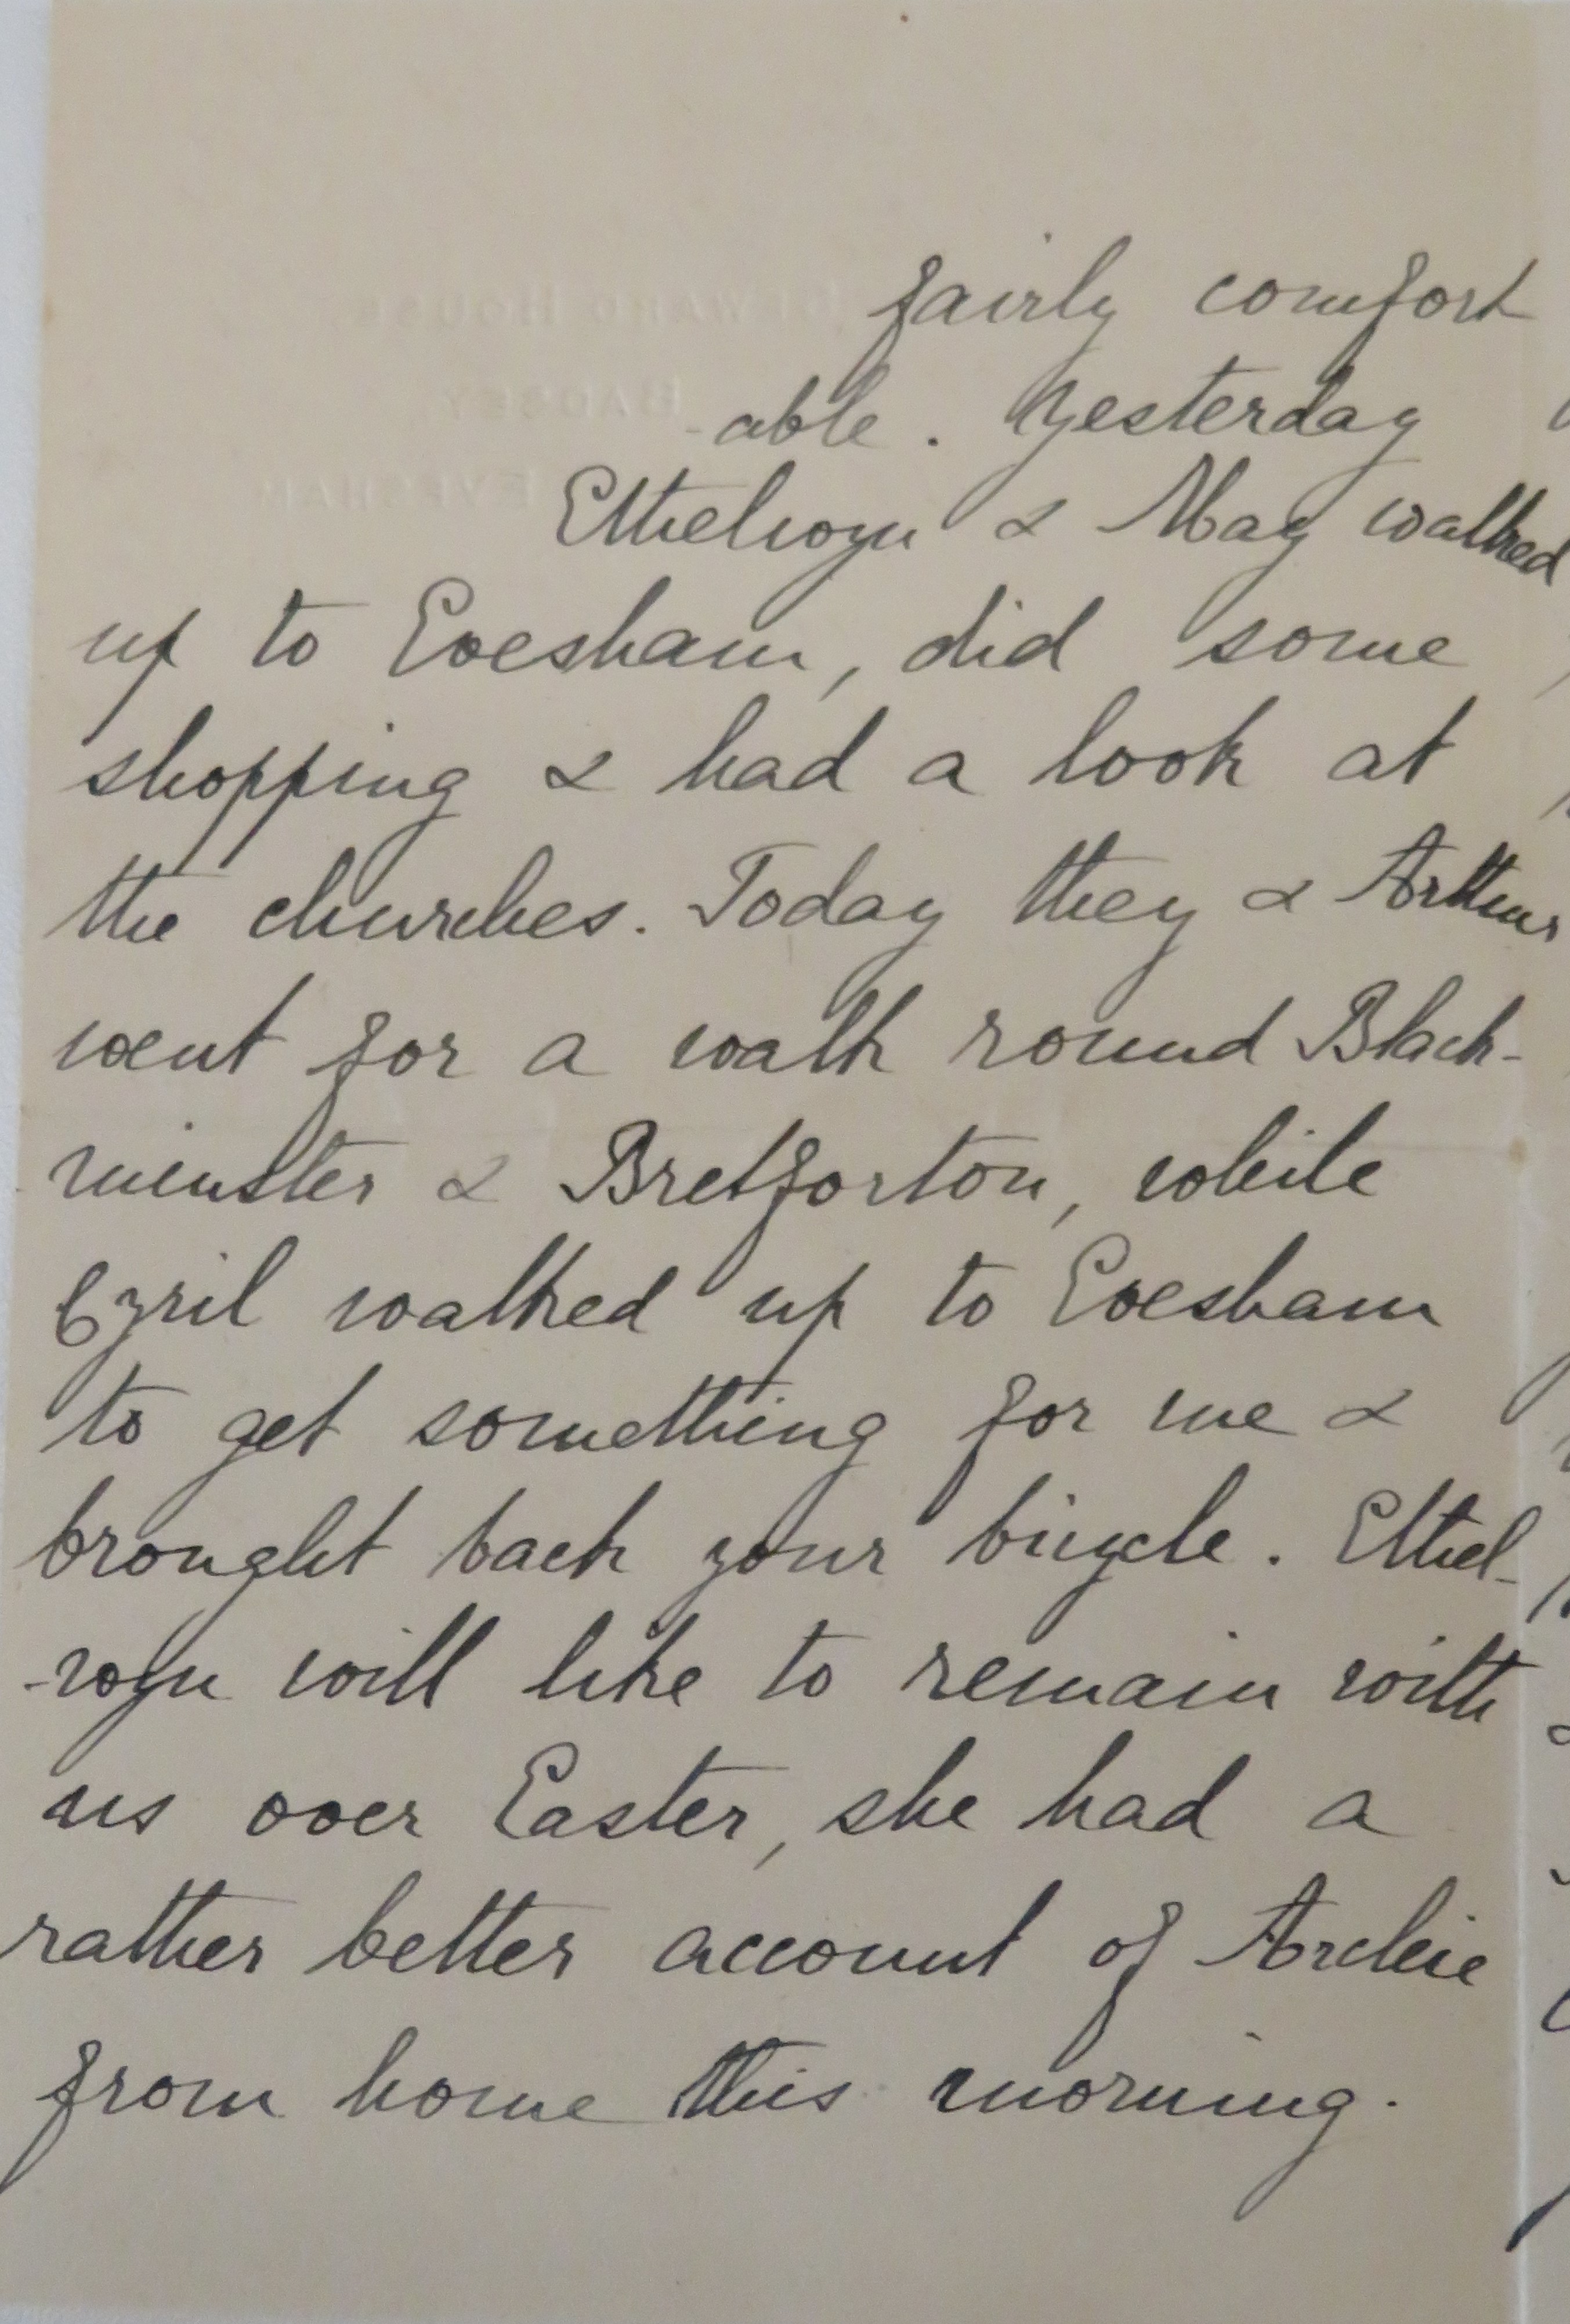 SEWARD HOUSE
BADSEY,
EVESHAM
fairly comfort
-able. Yesterday
Ethelwyn & May walked
up to Evesham, did some
shopping & had a look at
the churches. Today they & Arthur
went for a walk round Black-
minster & Bretforton, while
Cyril walked up to Evesham
to get something for me &
brought back your bicycle. Ethel-
-wyn will like to remain with
us over Easter, she had a
rather better account of Archie
from home this morning.